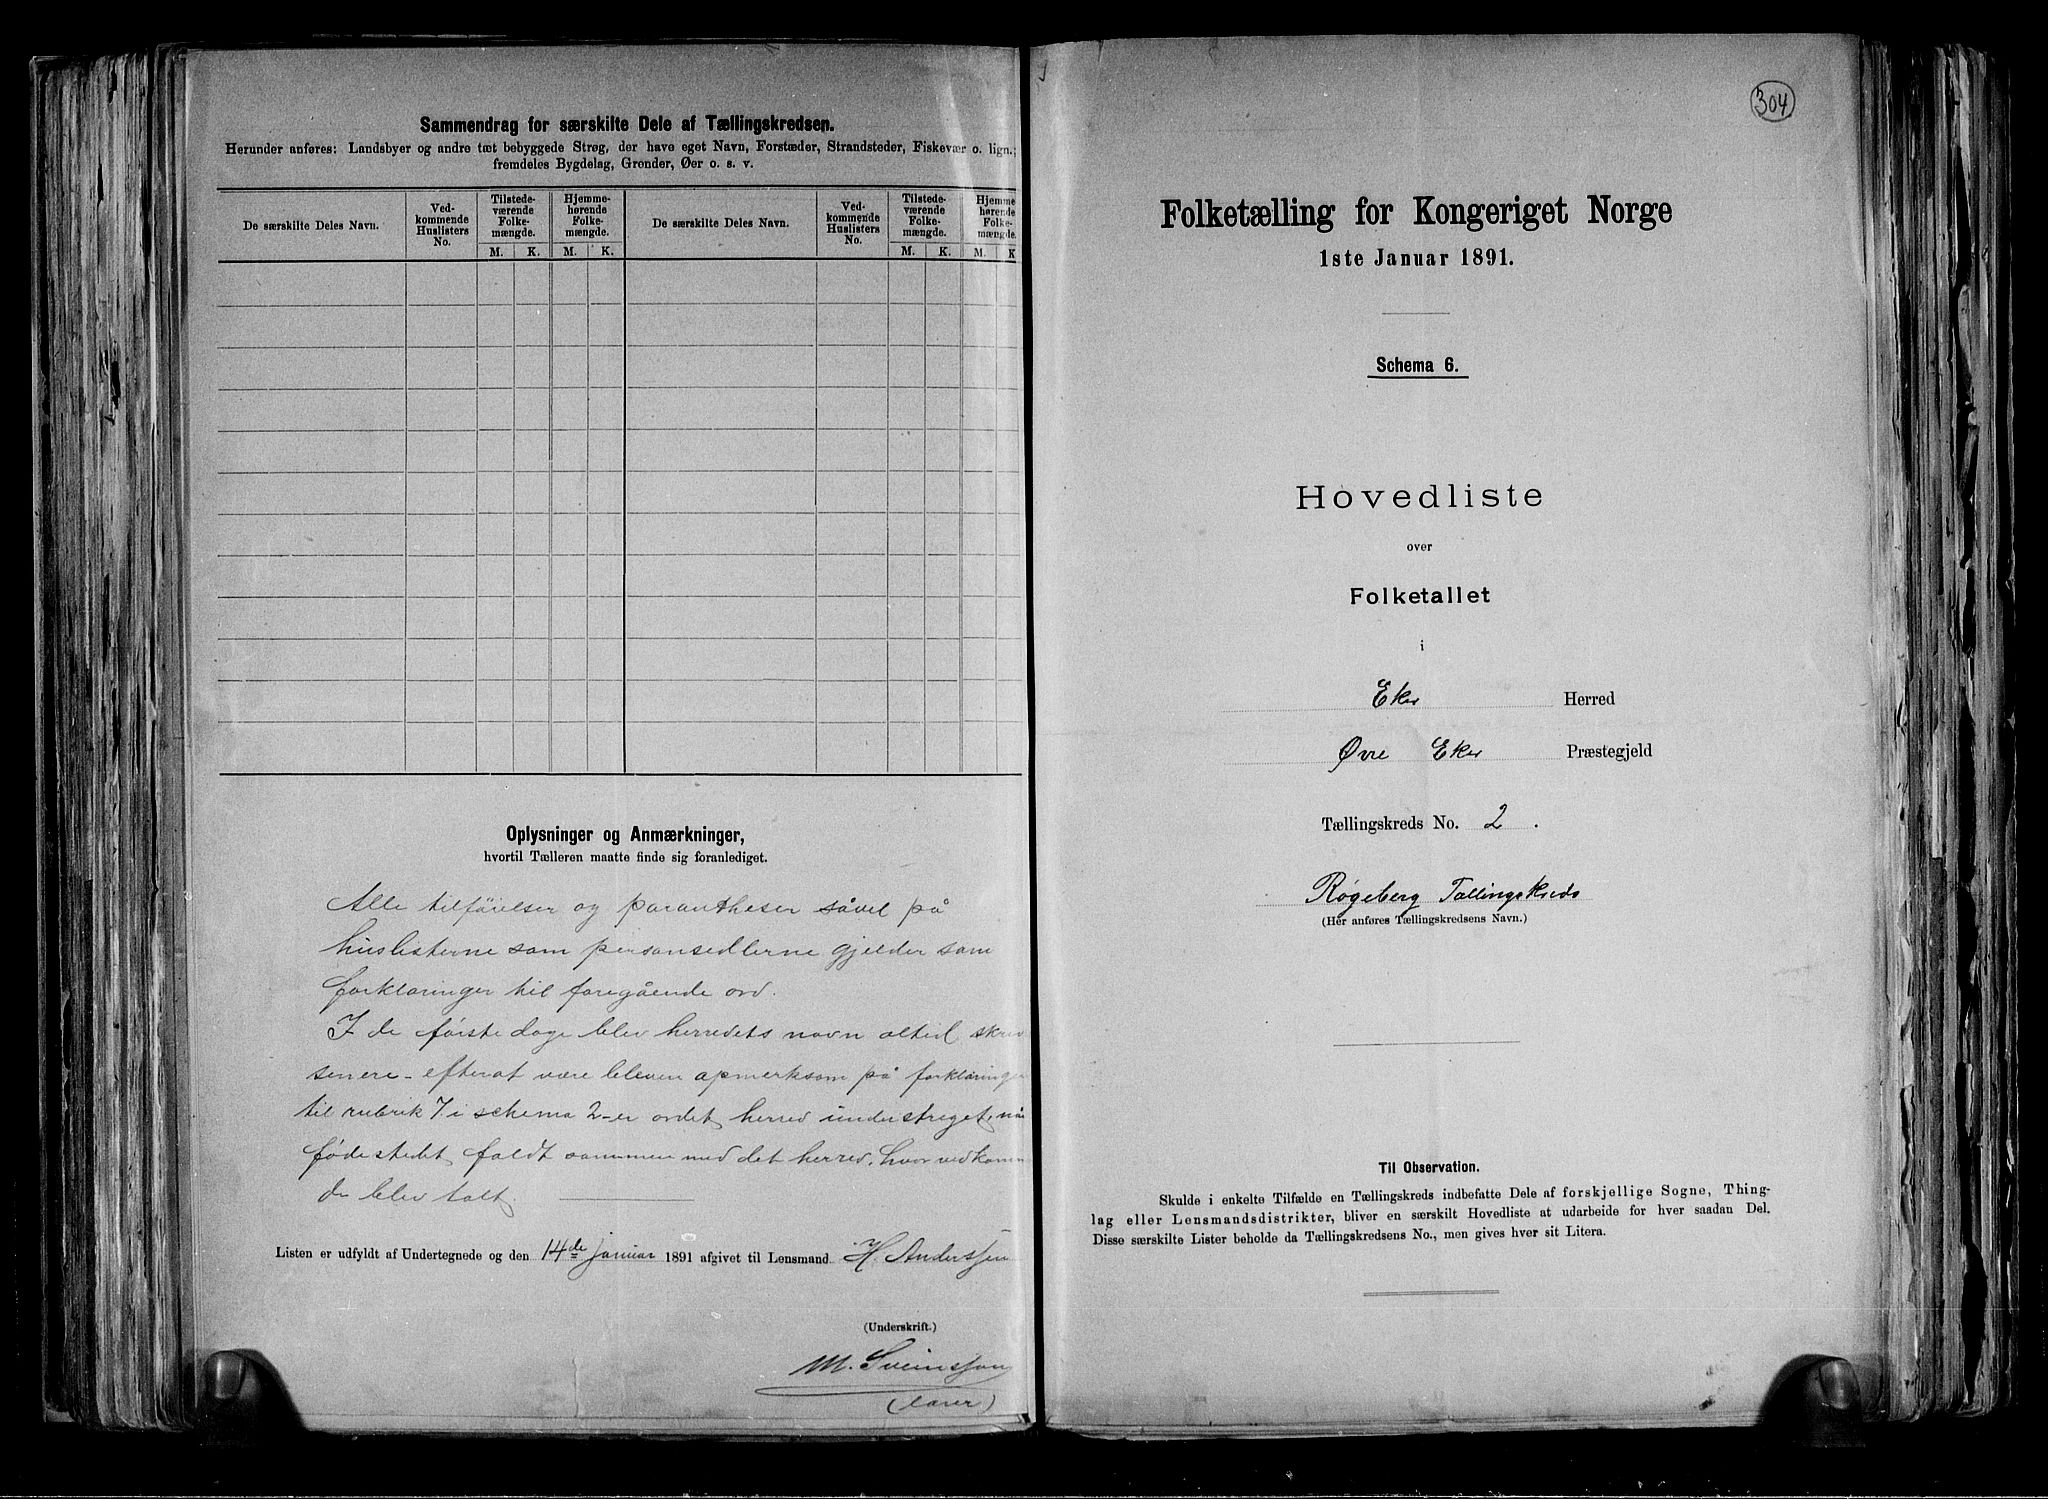 Sammendrag for særskilte Dele af Tællingskredsen.
Herunder anføres: Landsbyer og andre tæt bebyggede Strøg, der have eget Navn, Forstæder, Strandsteder, Fiskevær o. lign.;
fremdeles Bygdelag, Grender, Øer o. s. v.
De særskilte Deles Navn.
Ved-
kommende
Huslisters
No.
Tilstede-
værende
Folke-
mængde.
Hjemme-
hørende
Folke-
mængde.
De særskilte Deles Navn.
Ved-
kommende
Huslisters
No.
Tilstede-
værende
Folke-
mængde.
Hjemme-
hørende
Folke-
mængde.
M. K. M. K. M. K. M. K
Oplysninger og Anmærkninger,
hvortil Tælleren maatte finde sig foranlediget.
Alle tilføielser og parantheser såvel på
huslisterne som personsedlerne gjelder som
forklaringer til foregående ord.
I de første dage blev herredets navn altid skrev
senere - efterat være bleven opmerksom på forklaringe
til rubrik 7 i schema 2 - er ordet herred understreget, når
fødestedet faldt sammen med det herred, hvor vedkomm
de blev talt.
Listen er udfyldt af Undertegnede og den 14de januar 1891 afgivet til Lensmand H. Anderssen
(Underskrift.)
M. Sveinsson
(lærer)
304
Folketælling for Kongeriget Norge
1ste Januar 1891.
Schema 6.
Hovedliste
over
Folketallet
i
Eker Herred
Øvre Eker Præstegjeld
Tællingskreds No. 2.
Røgeberg Tællingskreds
(Her anføres Tællingskredsens Navn.)
Til Observation.
Skulde i enkelte Tilfælde en Tællingskreds indbefatte Dele af forskjellige Sogne, Thing-
lag eller Lensmandsdistrikter, bliver en særskilt Hovedliste at udarbeide for hver saadan Del.
Disse særskilte Lister beholde da Tællingskredsens No., men gives hver sit Litera.